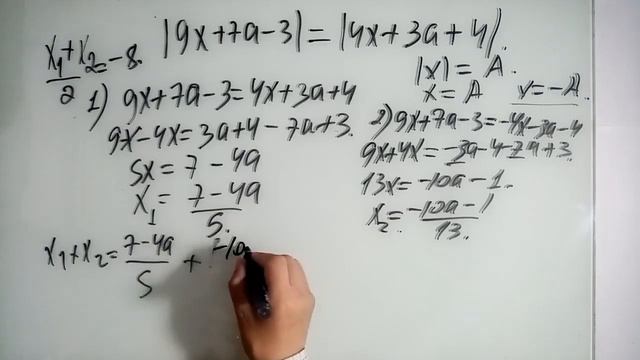 |9x+7a-3|=|4x+3a+4|.
x₁+x₂/2=-8.
|x|=A.
x=A x=-A.
1) 9x+7a-3=4x+3a+4
9x-4x=3a+4-7a+3.
5x=7-4a
x₁=7-4a/5.
2) 9x+7a-3=-4x-3a-4
9x+4x=-3a-4-7a+3.
13x=-10a-1.
x₂=-10a-1/13.
x₁+x₂=7-4a/5+-10